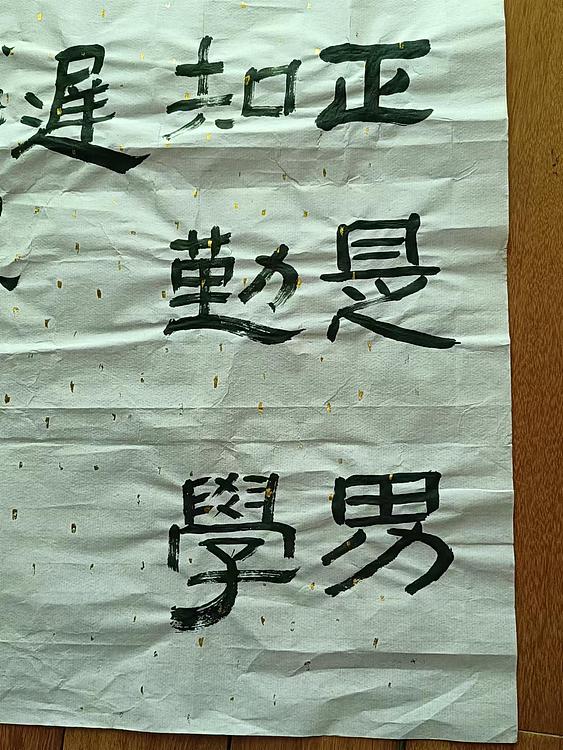 正是男
知勤學
遲